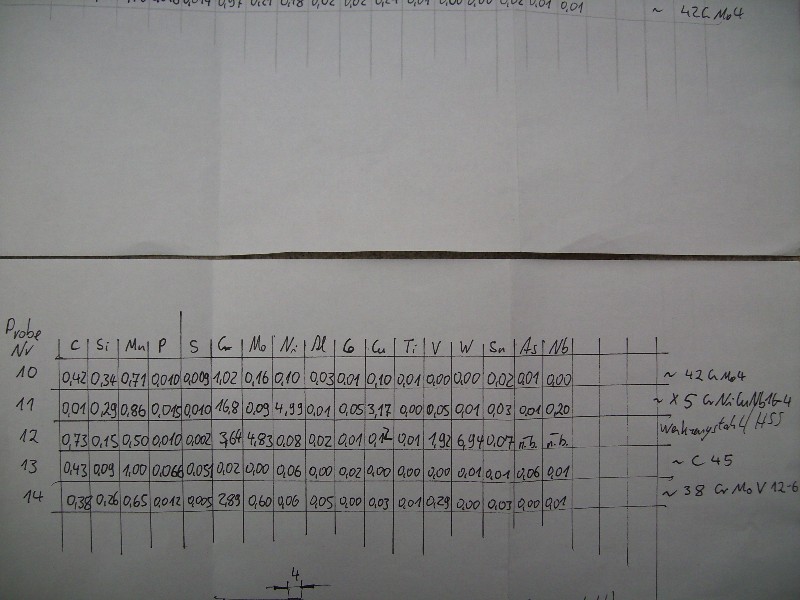 0,97 0,21 0,18 0,02 0,02 0,21 0,01 0,00 0,00 0,02 0,01 0,01 ~ 42CrMo4
Probe
Nr C Si Mn P S Cr Mo Ni Al Co Cu Ti V W Sn As Nb
10 0,42 0,34 0,71 0,010 0,009 1,02 0,16 0,10 0,03 0,01 0,10 0,01 0,00 0,00 0,02 0,01 0,00 ~ 42CrMo4
11 0,01 0,29 0,86 0,015 0,010 16,8 0,09 4,99 0,01 0,05 3,17 0,00 0,05 0,01 0,03 0,01 0,20 ~ X5 CrNiCuNb16-4
12 0,73 0,15 0,50 0,010 0,002 3,64 4,83 0,08 0,02 0,01 0,12 0,01 1,92 6,94 0,07 n.b. n.b. Werkzeugstahl/HSS
13 0,43 0,09 1,00 0,066 0,051 0,02 0,00 0,06 0,00 0,02 0,00 0,00 0,00 0,01 0,01 0,06 0,01 ~ C 45
14 0,38 0,26 0,65 0,012 0,005 2,89 0,60 0,06 0,05 0,00 0,03 0,01 0,29 0,00 0,03 0,00 0,01 ~ 38 CrMoV 12-6
4